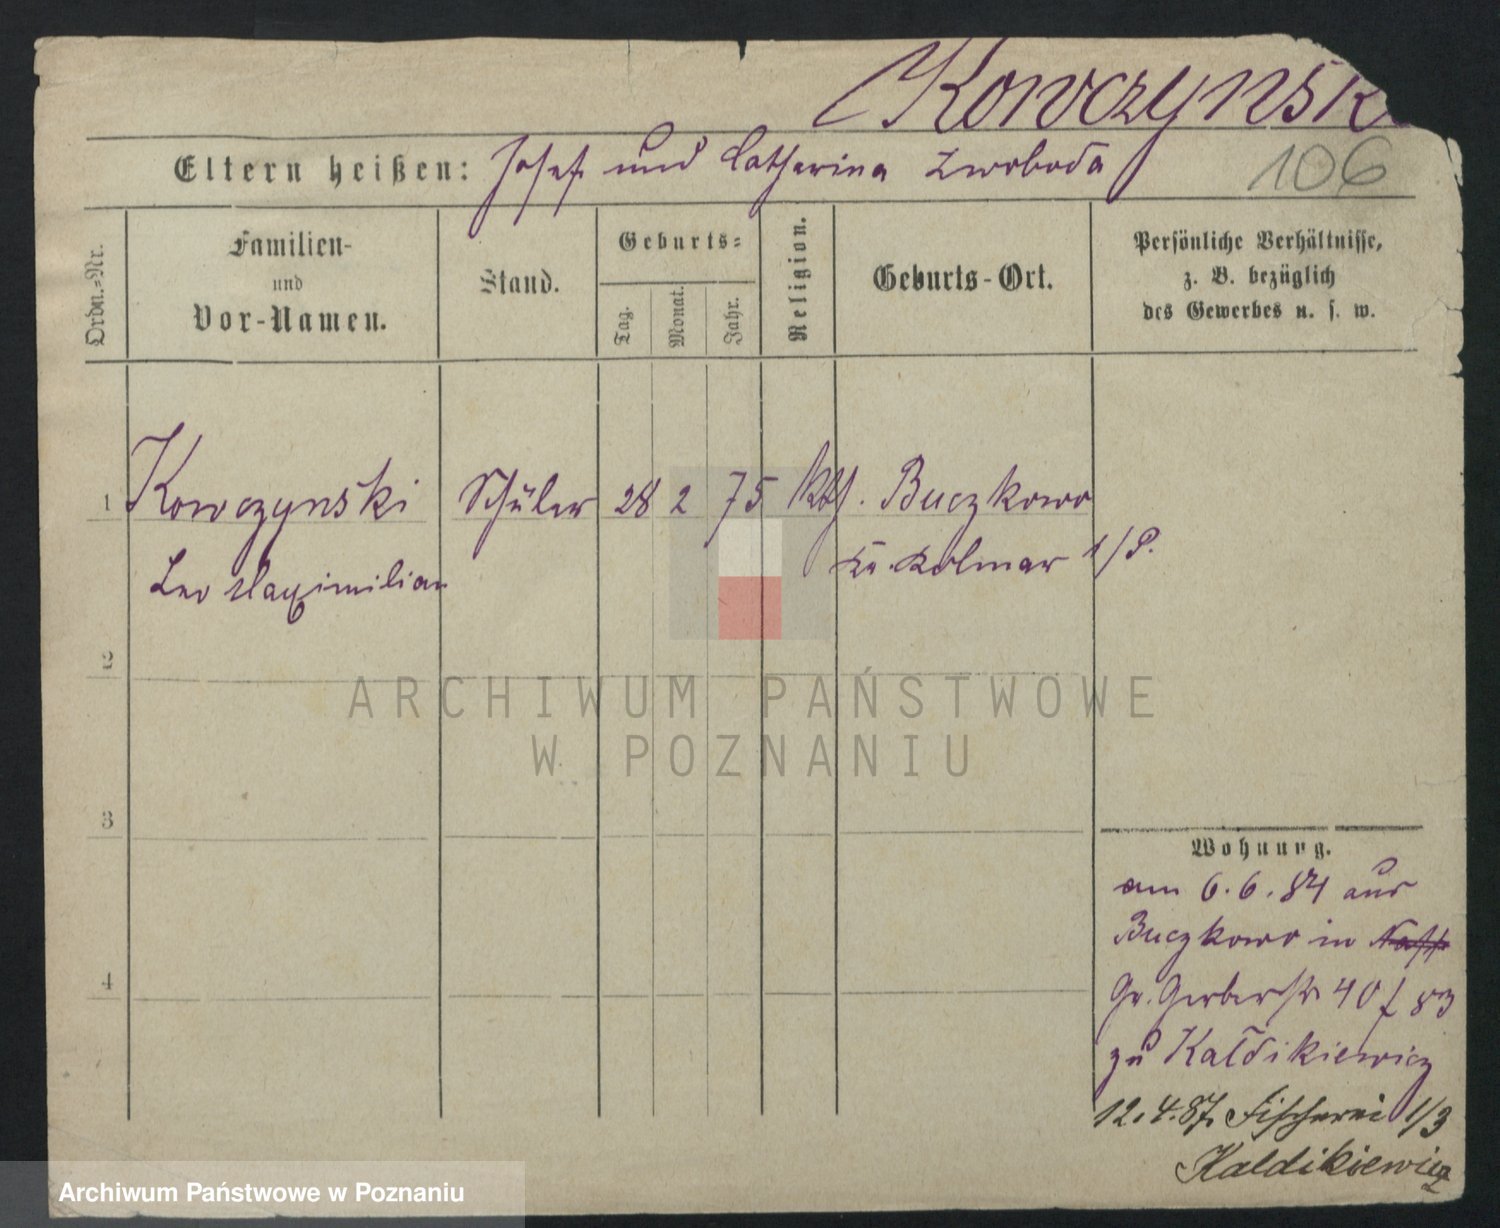 Kowczynski
Eltern heißen: Josef und Catharina Zwoboda
106
Ordn.=Nr.
Familien-
und
Vor-Namen.
Stand.
Geburts=
Tag.
Monat.
Jahr.
Religion.
Geburts-Ort.
Persönliche Verhältnisse,
z. B. bezüglich
des Gewerbes u. s. w.
1 Kowczynski Schüler 28 2 75 kth. Buczkowo
Leo Maximilian Kr. Kolmar i/P.
2
ARCHIWUM PAŃSTWOWE
W POZNANIU
3
Wohnung.
am 6.6.84 aus
Buczkowo in
4
Gr. Gerberstr 40 f 83
zu Kaldikiewicz
12.4.87. Fischerei 1/3
Kaldikiewicz
Archiwum Państwowe w Poznaniu